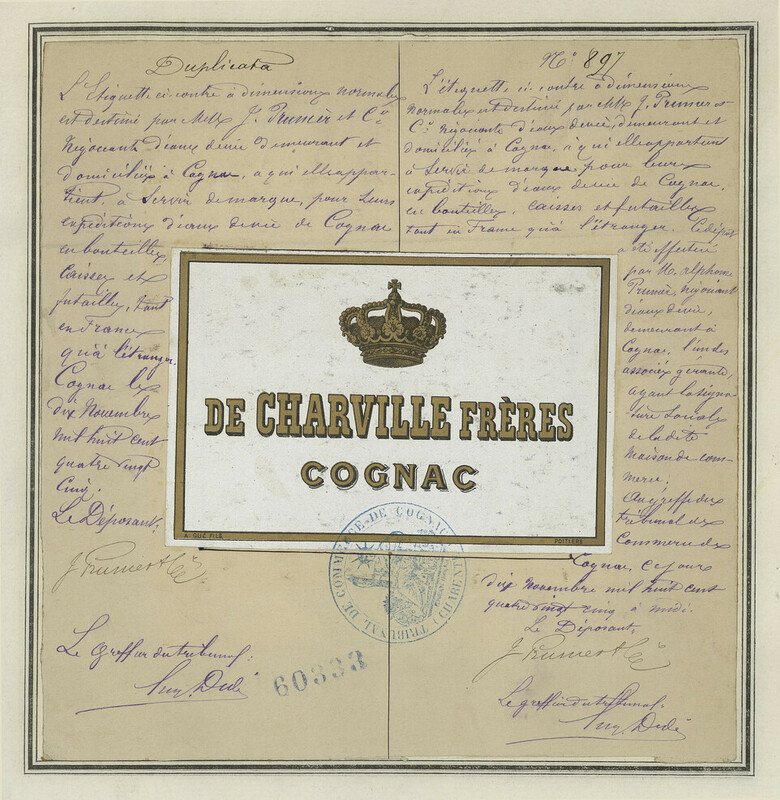 Duplicata
L'Etiquette ci-contre à dimensions normales
est destiné par MM J. Prunier et Cie
Négociants d'eaux devie demeurant et
domiciliés à Cognac, a qui elle appar-
tient, à Servir de marque, pour leurs
expéditions d'eaux devie de Cognac
en bouteilles,
Caisses et
futailles, tant
en France
qu'à l'étranger.
Cognac le
dix Novembre
mil huit cent
quatre vingt
Cinq.
Le Déposant.
J. Prunier & Cie
Le Greffier du tribunal:
N° 897
L'étiquette, ci-contre à dimensions
normales est destiné par MM J. Prunier et
Cie Négociants d'eaux devie, demeurant et
domiciliés à Cognac, à qui elle appartien
à Servir de marque, pour leurs
expéditions d'eaux devie de Cognac,
en bouteilles, caisses et futailles
tant en France qu'à l'étranger. Ce dépôt
a été effectué
par M. Alphonse
Prunier, Négociant
d'eaux devie,
demeurant à
Cognac, l'un des
associés gérants,
ayant la signa-
ture Sociale
de la dite
Maison de com-
merce.
Au greffe du
tribunal de
Commerce de
Cognac, ce jour
dix Novembre mil huit cent
quatre vingt cinq à midi.
Le Déposant,
J. Prunier & Cie
Le greffier du tribunal.
DE CHARVILLE FRÈRES
COGNAC
A. GUÉ FILS
POITIERS
TRIBUNAL DE COMMERCE DE COGNAC (CHARENTE)
60333